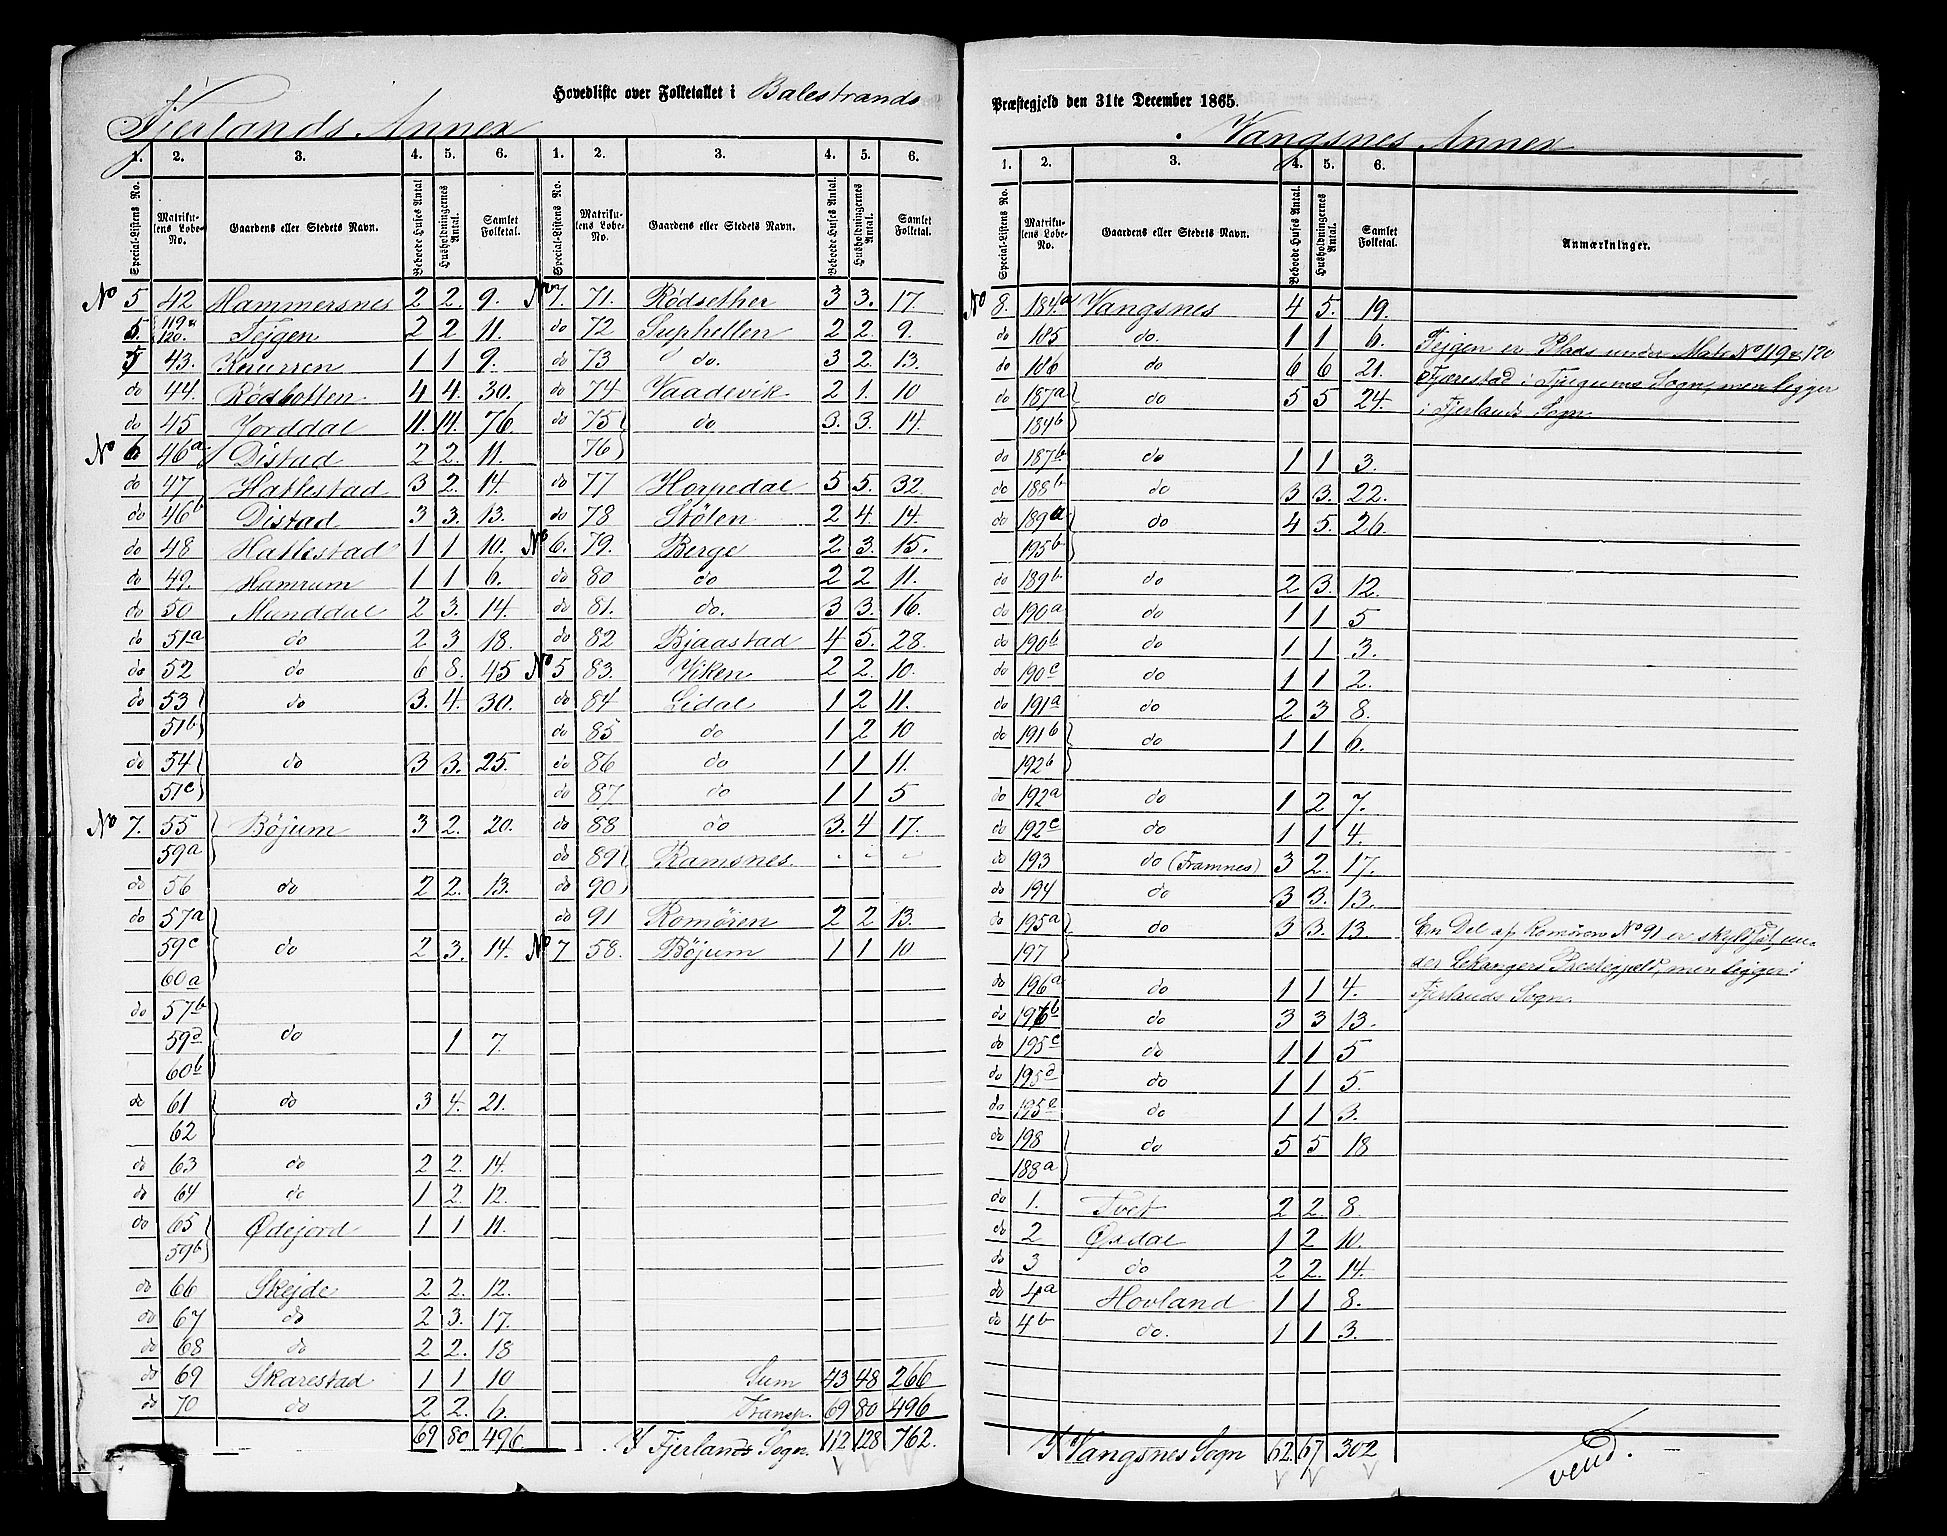 Hovedliste over Folketallet i Balestrands
Fjerlands Annex
1. 2. 3. 4. 5. 6. 1. 2. 3. 4. 5. 6.
Special-Listens No. Matrikulens Løbe-No. Gaardens eller Stedets Navn. Beboede Huses Antal Husholdningernes Antal. Samlet Folketal. Special-Listens No. Matrikulens Løbe-No. Gaardens eller Stedets Navn. Beboede Huses Antal. Husholdningernes Antal. Samlet Folketal.
No 5 42 Hammersnes 2 2. 9.
5. 119 a 120. Fejgen 2 2 11.
5 43. 1 1 9.
do 44. Rødbotten 4 4. 30.
do 45 Jorddal 11. 14. 76.
No 6 46a Distad 2 2. 11.
do 47 Hatlestad 3 2. 14.
do 46b Distad 3 3. 13.
do 48 Hatlestad 1 1 10.
do 49. Hamrum 1 1 6.
do 50 Munddal 2 3. 14.
do 51a do 2 3 18.
do 52 do 6 8. 45
do 53 do 3. 4. 30.
51b
do 54 do 3 3. 25.
51c
No 7. 55 Bøjum 3 2. 20.
59a
do 56 do 2 2. 13.
do 57a
59c do 2 3. 14.
60a
do 57b
59d do 1 7.
60b
do 61 do 3 4. 21.
62
do 63 do 2 2. 14.
do 64 do 1 2. 12.
do 65 Ødejord 1 1 11.
59b
do 66 Skejde 2 2. 12.
do 67 do 2 3. 17.
do 68 do 2 2. 18
do 69 Skarestad 1 1 10
do 70 do 2 2. 6.
69 80 496.
No 7. 71. Rødsether 3 3. 17.
do 72 Suphellen 2 2. 9.
do 73 do. 3 2. 13.
do 74 Vaadevik 2 1. 10
do 75 do 3. 3. 14.
76
do 77 Horpedal 5 5. 32.
do 78 Stølen 2 4. 14.
No 6. 79. Berge 2 3. 15.
do 80 do 2 2 11.
do 81. do. 3 3. 16.
do 82 Bjaastad 4 5. 28.
No 5 83. Viken 2 2. 10.
do 84 Lidal 1 2 11.
do 85 do 1 2 10
do 86 do 1 1 11.
do 87 do 1 1 5
do 88 do 3. 4 17.
do 89 Ramsnes.
do 90
do 91 Romøren 2 2 13.
No 7 58. Bøjum 1 1 10
Sum 43 48 266
Transp. 69 80 496
I Fjerlands Sogn. 112 128 762.
Præstegjeld den 31te December 1865.
Vangsnes Annex
1. 2. 3. 4. 5. 6.
Special-Listens No. Matrikulens Løbe-No. Gaardens eller Stedets Navn. Beboede Huses Antal. Husholdningernes Antal. Samlet Folketal. Anmærkninger.
No 8. 184a Vangsnes 4 5. 19.
do 185 do 1 1 6.
do 186 do 6 6 21.
do 187a do 5 5 24.
184b
do 187b do 1 1 3.
do 188b do 3 3. 22.
do 189a do 4 5. 26.
195b
do 189b do 2 3. 12.
do 190a do 1 1 5
do 190b do 1 1 3.
do 190c do 1 1 2.
do 191a do 2 3 8.
do 191b do 1 1 6.
192b
do 192a do 1 2 7.
do 192c do 1 1 4.
do 193 do (Framnes) 3 2. 17.
do 194 do 3 3. 13.
do 195a do 3 3. 13
197
do 196a do 1 1 4.
do 196b do 3 3 13.
do 195c do 1 1 5
do 195d do 1 1 5.
do 195e do 1 1 3.
do 198 do 5 5 18
188a
do 1. Tvet 2 2. 8.
do 2 Øxdal 1 2 10.
do 3 do 2 2. 14.
do 4a Hovland 1 1 8.
do 4b do. 1 1 3.
I Vangsnes Sogn 62. 67 302
Fejgen er Plads under Matr No 119 & 120
Fjærestad i Tjugums Sogn, men ligger
i Fjerlands Sogn
En Del af Romøren No 91 er skyldsat un-
der Lekangers Prestegjeld, men ligger i
Fjerlands Sogn.
vend.